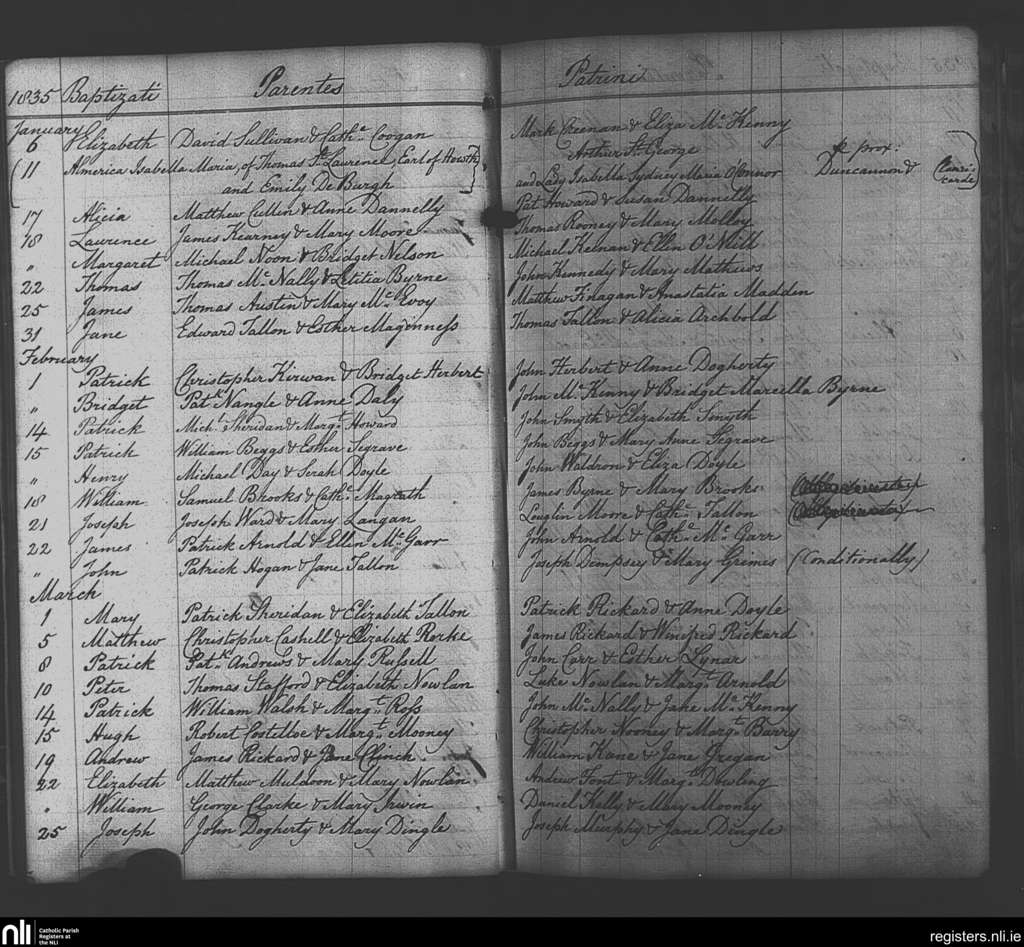 1835 Baptizati Parentes Patrini
January
6 Elizabeth David Sullivan & Cathe. Coogan Mark Creenan & Eliza Mc. Kenny
(11 Almerica Isabella Maria, of Thomas St. Laurence, Earl of Howth Arthur St. George p prox:
and Emily De Burgh and Lady Isabella Sydney Maria O'Connor Duncannon &
17 Alicia Matthew Cullin & Anne Dannelly Pat Howard & Susan Dannelly
18 Laurence James Kearney & Mary Moore Thomas Rooney & Mary Molloy
" Margaret Michael Noon & Bridget Nelson Michael Keenan & Ellen O'Neill
22 Thomas Thomas Mc. Nally & Letitia Byrne John Kennedy & Mary Mathews
25 James Thomas Austin & Mary Mc. Evoy Matthew Finagan & Anastatia Madden
31 Jane Edward Tallon & Esther Magenness Thomas Tallon & Alicia Archbold
February
1 Patrick Christopher Kirwan & Bridget Herbert John Herbert & Anne Dogherty
" Bridget Patk. Nangle & Anne Daly John Mc. Kenny & Bridget Marcella Byrne
14 Patrick Michl. Sheridan & Margt. Howard John Smyth & Elizabeth Smyth
15 Patrick William Beggs & Esther Segrave John Beggs & Mary Anne Segrave
" Henry Michael Day & Serah Doyle John Waldron & Eliza Doyle
18 William Samuel Brooks & Cathe. Magrath James Byrne & Mary Brooks
21 Joseph Joseph Ward & Mary Langan Loughlin Moore & Cathe. Tallon
22 James Patrick Arnold & Ellen Mc. Garr John Arnold & Cathe. Mc. Garr
" John Patrick Hogan & Jane Tallon Joseph Dempsey & Mary Grimes (Conditionally)
March
1 Mary Patrick Sheridan & Elizabeth Tallon Patrick Rickard & Anne Doyle
5 Matthew Christopher Cashell & Elizabeth Rorke James Rickard & Winifred Rickard
8 Patrick Patk. Andrews & Mary Russell John Carr & Esther Lynar
10 Peter Thomas Stafford & Elizabeth Nowlan Luke Nowlan & Margt. Arnold
14 Patrick William Walsh & Margt. Ross John Mc. Nally & Jane Mc. Kenny
15 Hugh Robert Costelloe & Margt. Mooney Christopher Nooney & Margt. Barry
19 Andrew James Rickard & Jane Clinch William Kane & Jane Gregan
22 Elizabeth Matthew Muldoon & Mary Nowlan Andrew Font & Margt. Dowling
" William George Clarke & Mary Irwin Daniel Kelly & Mary Mooney
25 Joseph John Dogherty & Mary Dingle Joseph Murphy & Jane Dingle
nli Catholic Parish
Registers at
the NLI
registers.nli.ie